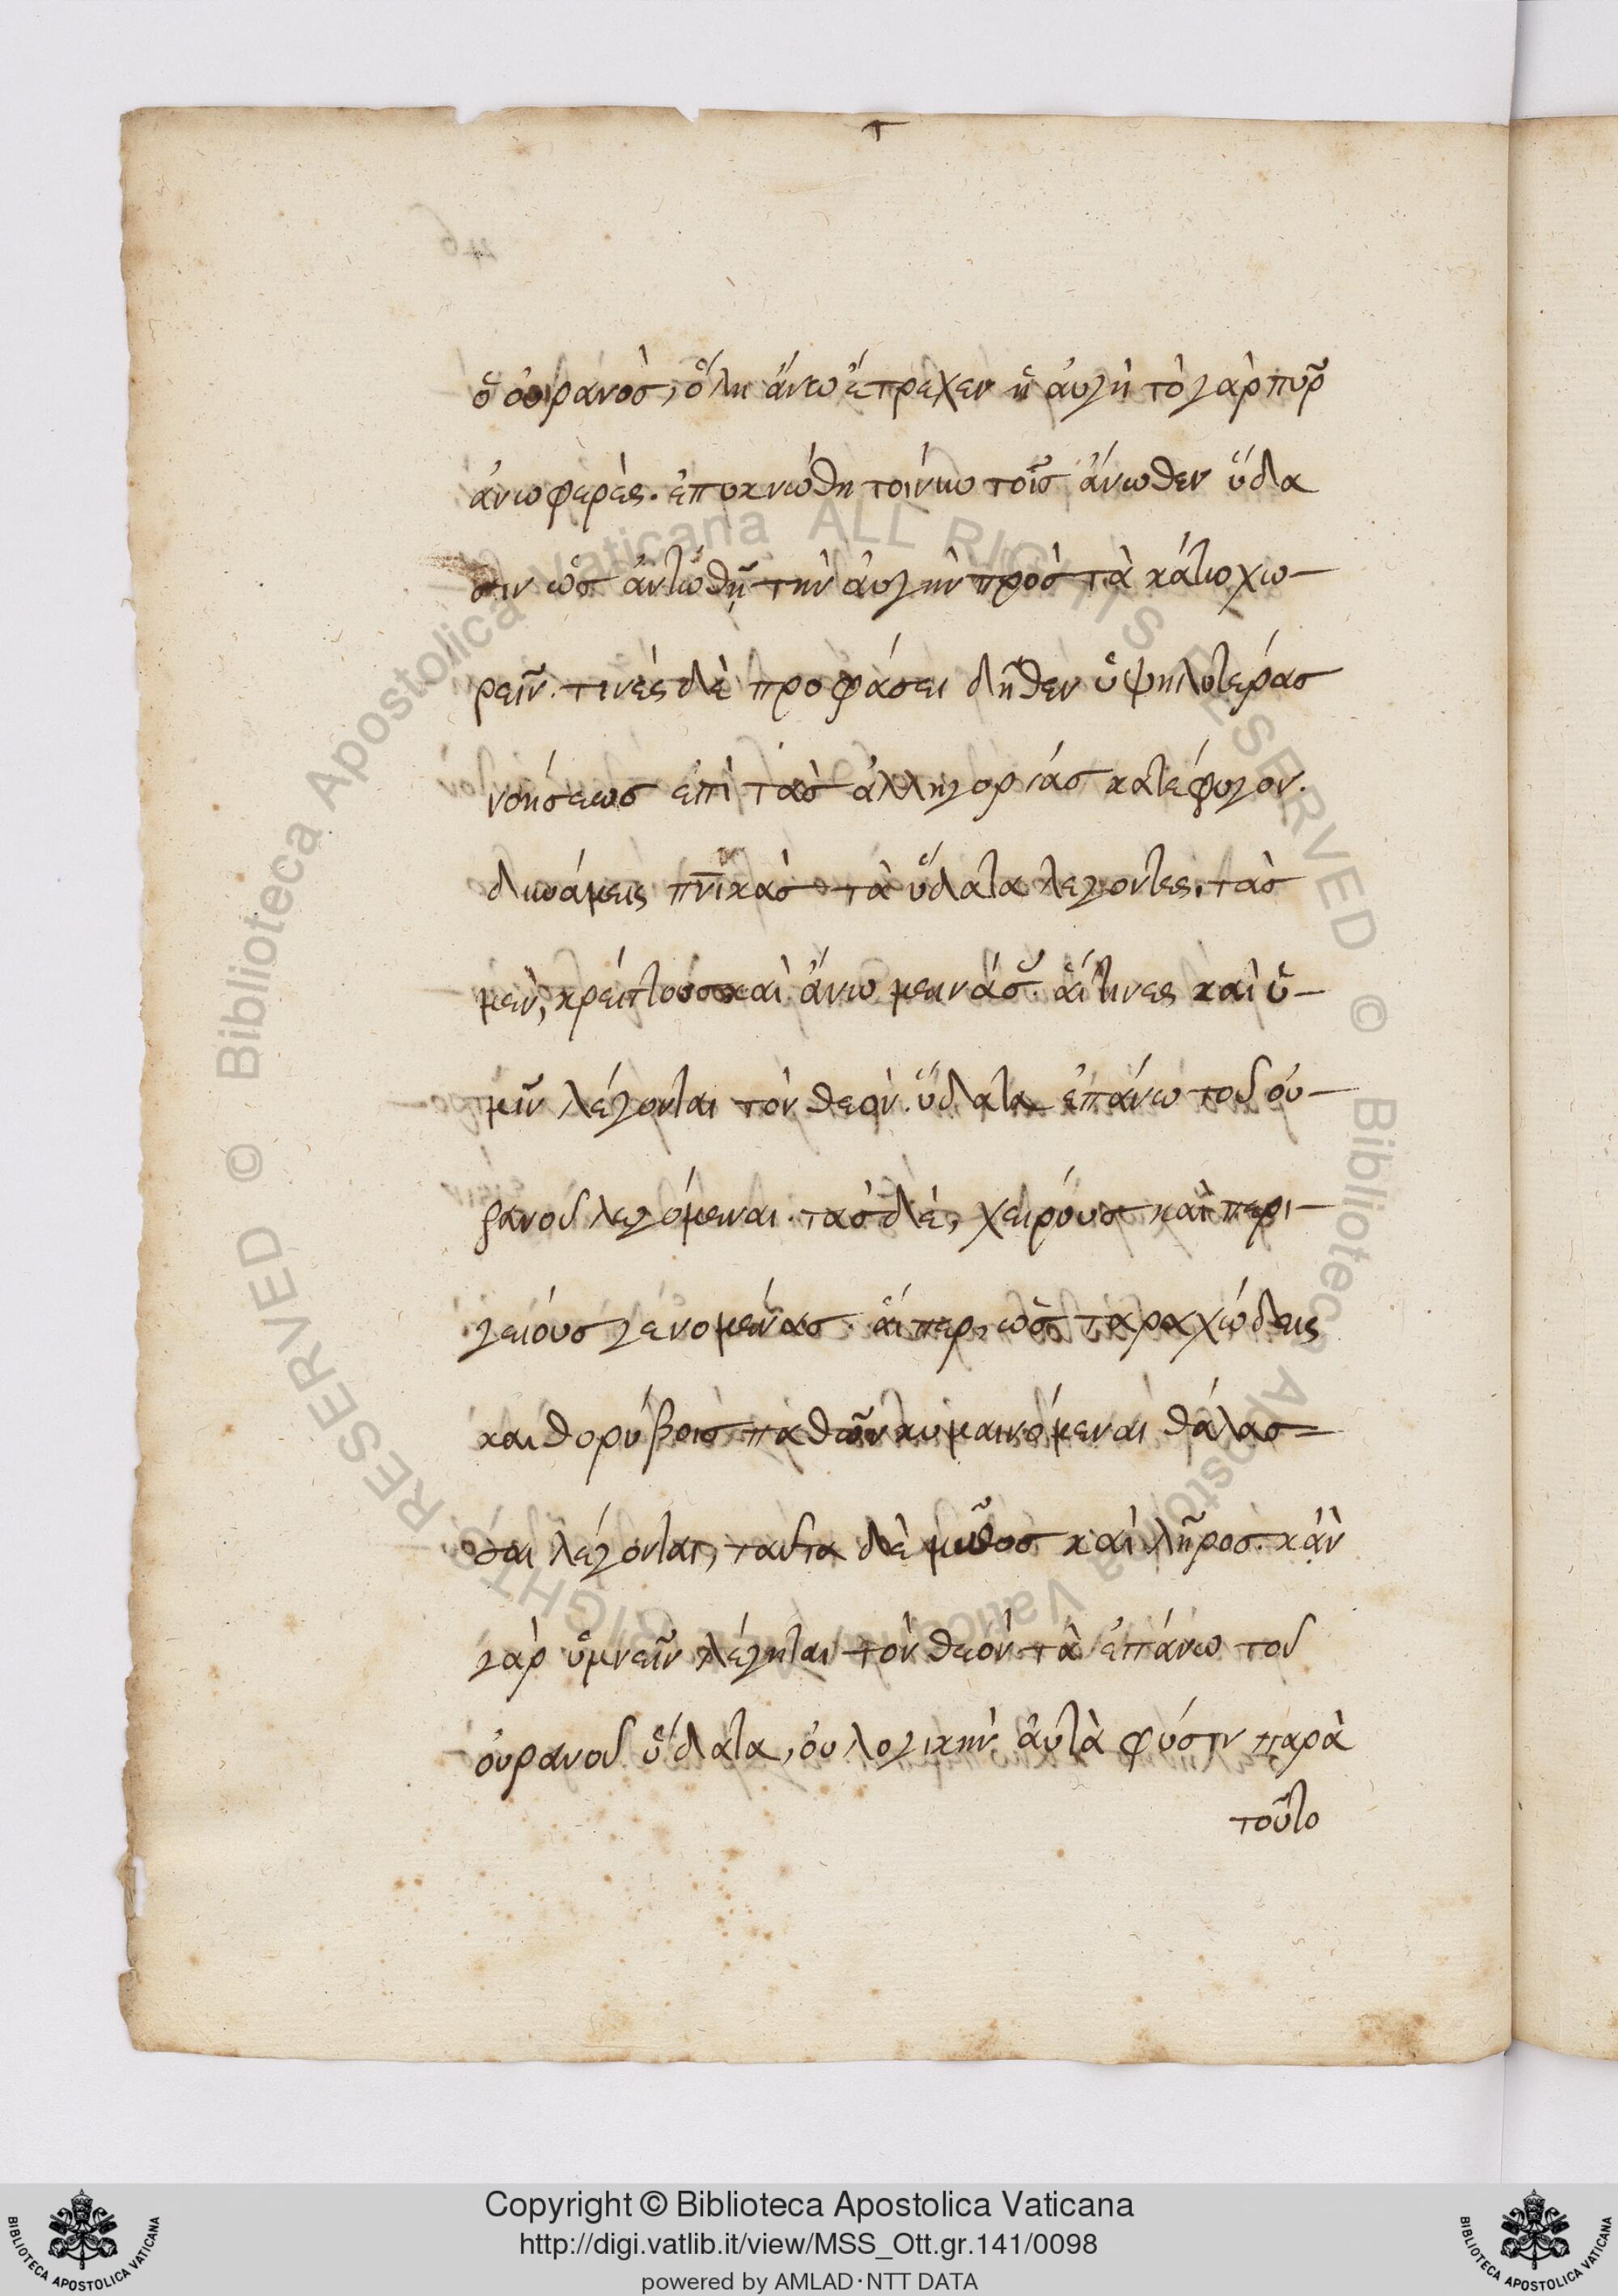 ὁ οὐρανὸσ, ὅλη ἄνω ἔτρεχεν ἡ ἀυγὴ τὸ γὰρ πυρ͂
ἀνωφερὲς. ἐπυκνώθη τοίνυν τοῖσ ἄνωθεν ὕδα
σιν ὡσ ἀντωθῇ τὴν ἀυγὴν πρὸσ τὰ κάτω χω-
ρεῖν. τινὲς δὲ προφάσει δῆθεν ὑψηλοτέρασ
νοήσεωσ ἐπὶ τὰσ ἀλληγορίασ κατέφυγον.
δυνάμεις πν̅ικὰσ τὰ ὕδατα λεγοντες. τὰσ
μὲν, κρείττουσ καὶ ἄνω μεινάσ. ἅιτινες καὶ ὑ-
μῖν λέγονται τὸν θεὸν. ὕδατα ἐπάνω τοῦ ὀυ-
ρανοῦ λεγόμεναι. τὰσ δὲ, χείρουσ καὶ περι-
γείουσ γενομένασ. ἅιπερ, ὡσ ταραχώδεις
και θορύβοισ παθῶν κυμαινόμεναι θάλασ=
σαι λέγονται, ταῦτα δὲ μῦθοσ καὶ λῆροσ. κἂν
γὰρ ὑμνεῖν λέγηται τὸν θεόν τὰ ἐπάνω τοῦ
ὀυρανοῦ ὕδατα, ὀυ λογικὴν ἀυτὰ φύσιν παρὰ
τοῦτο
Copyright © Biblioteca Apostolica Vaticana
http://digi.vatlib.it/view/MSS_Ott.gr.141/0098
powered by AMLAD·NTT DATA
BIBLIOTECA APOSTOLICA VATICANA
BIBLIOTECA APOSTOLICA VATICANA
© Biblioteca Apostolica Vaticana ALL RIGHTS RESERVED
© Biblioteca Apostolica Vaticana ALL RIGHTS RESERVED